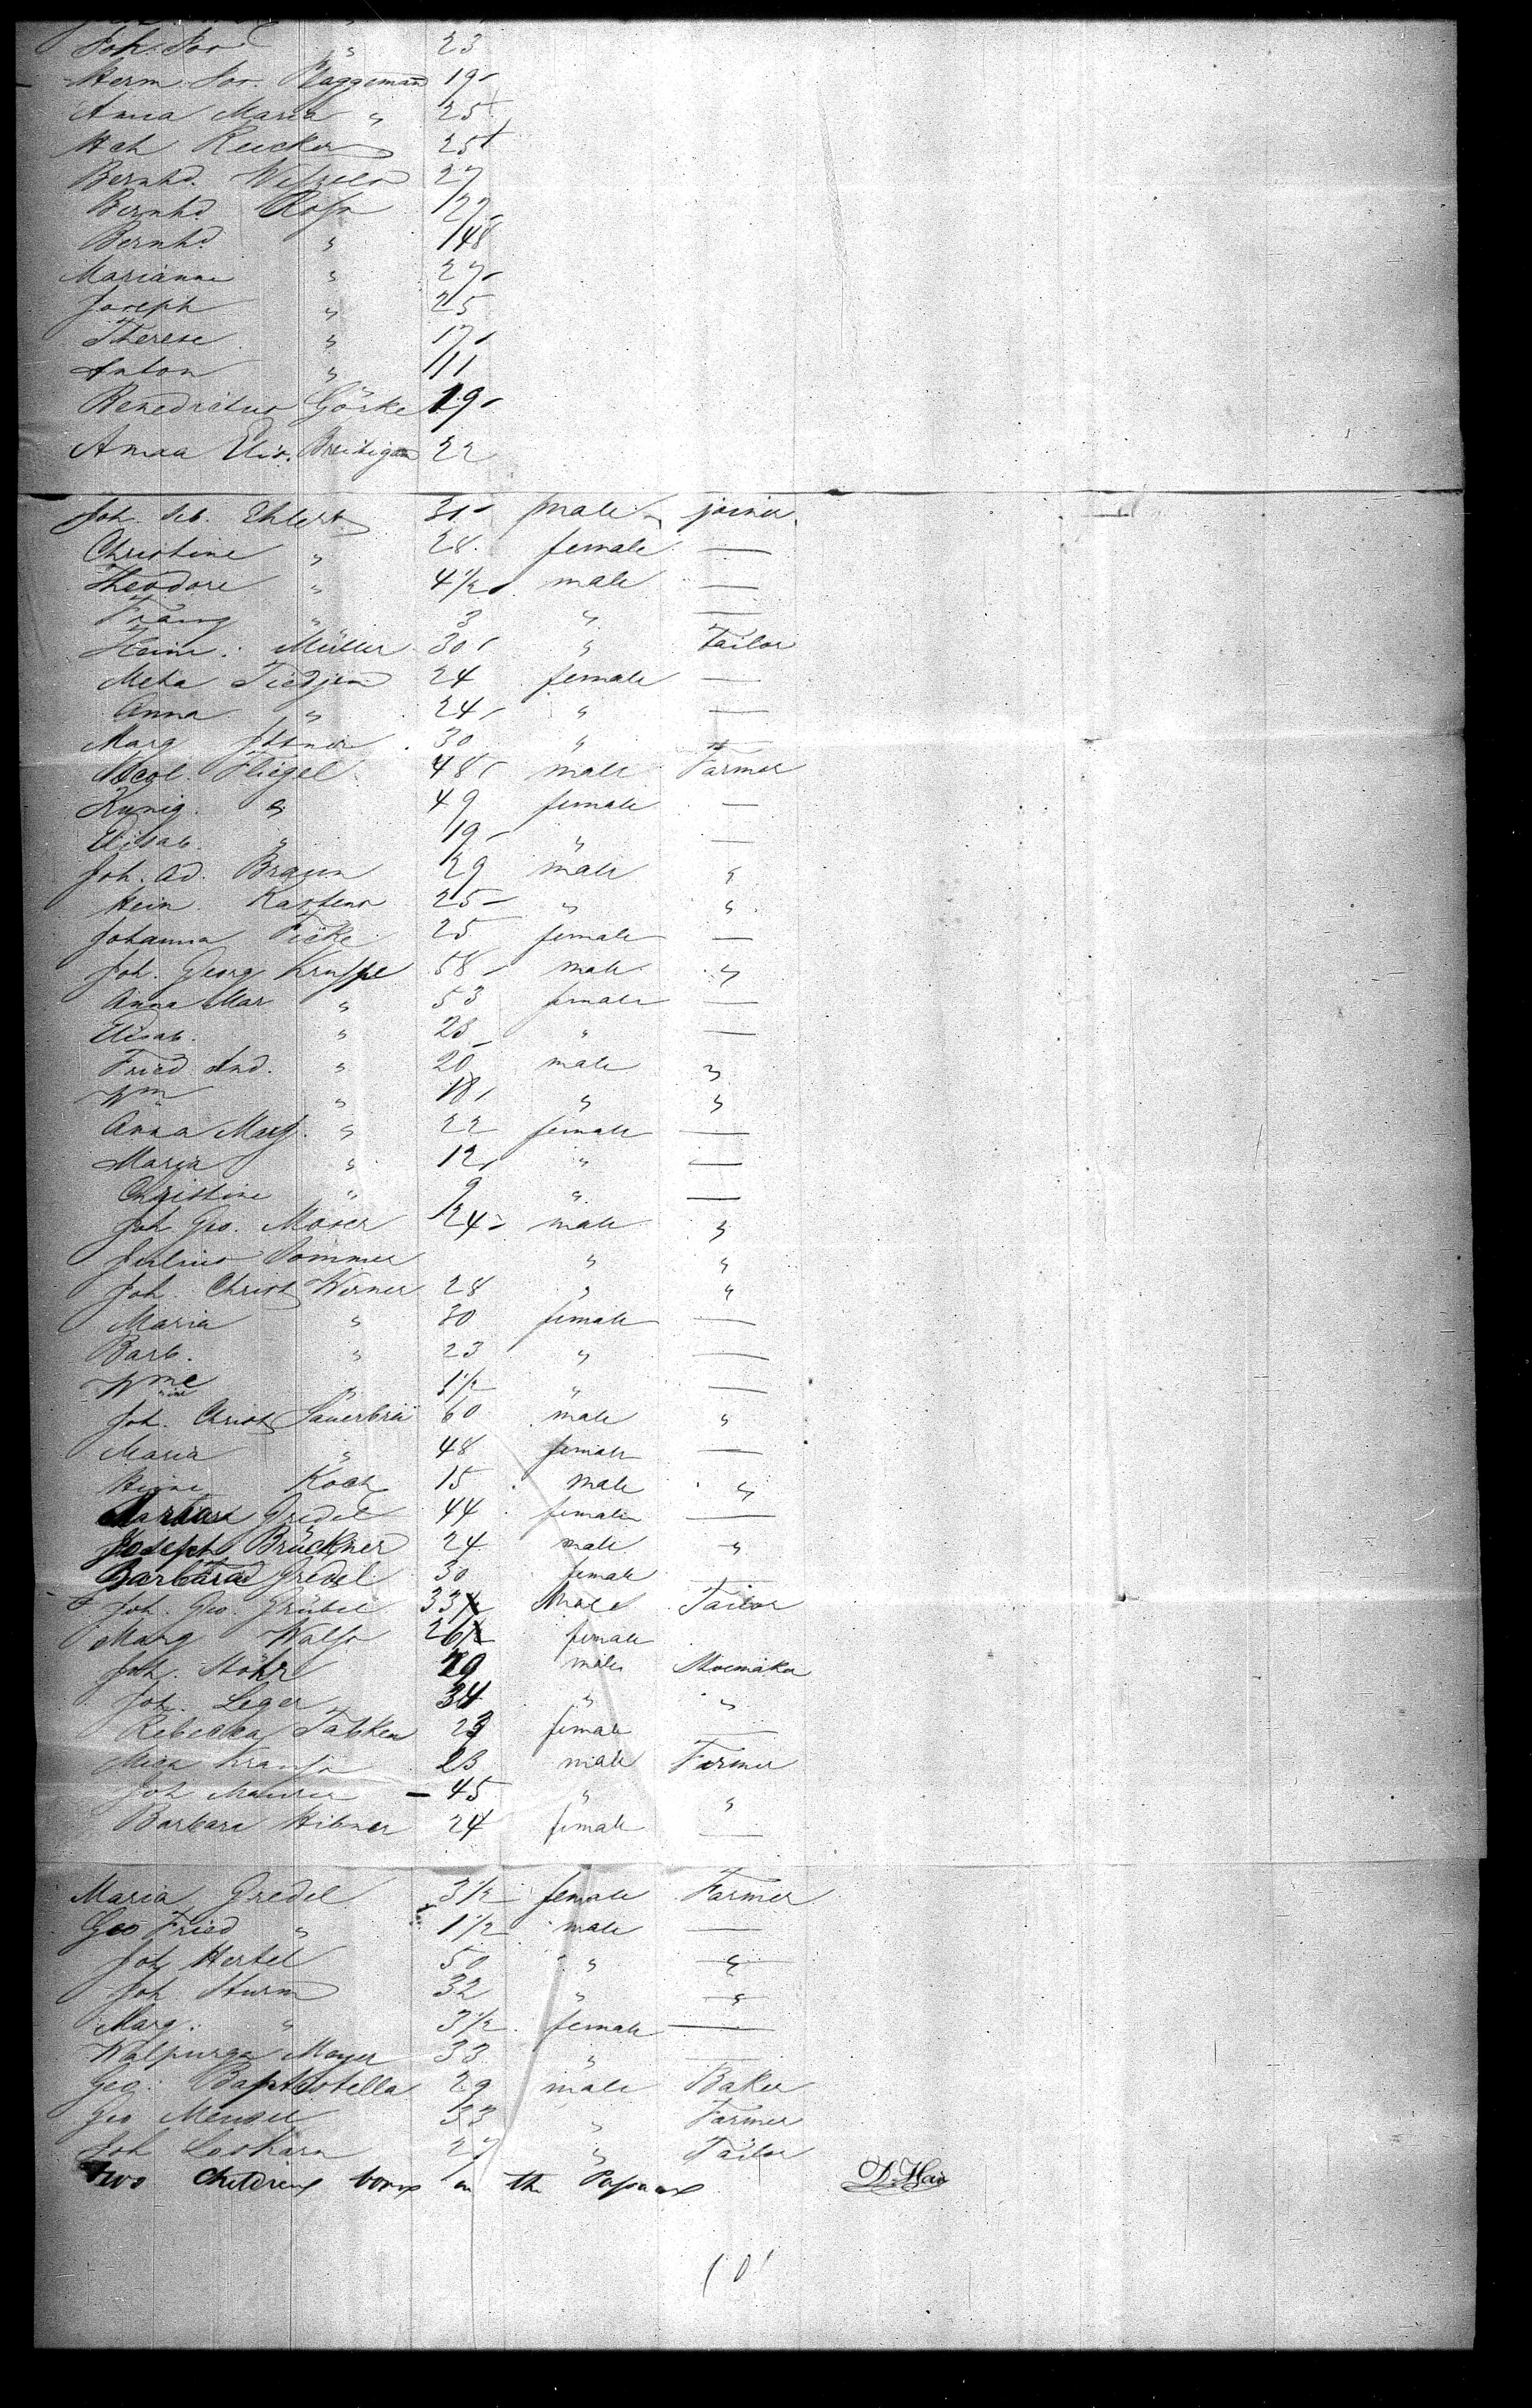 Joh. Jos " 23
Herm. Jos. Plaggeman 19
Anna Maria " 25
Hch Reickers 25
Bernhd. Wessels 27
Bernhd. 27
Bernhd. " 48
Marianne " 27
Joseph " 25
Therese " 17
Anton " 11
Benedictus Görke 19
Anna Elis. 22
Joh. Seb. Ehlert 31 male joiner
Christine " 28 female —
Theodore " 4 1/2 male —
Franz " 3 " —
Heinr. Müller 30 " Tailor
Meta Tiedjen 24 female —
Anna " 24 " —
Marg 30 " —
Nicol. Fliegel 48 male Farmer
Kunig. " 49 female —
Elisab. " 19 " —
Joh. Ad. Braun 29 male "
Hein. Kastens 25 " "
Johanna Ficke 25 female —
Joh. Georg Kruppe 58 male "
Anna Mar " 53 female —
Elisab. " 23 " —
Fried And. " 20 male "
Wm " 18 " "
Anna Marg. " 22 female —
Maria " 12 " —
Christine " 9 " —
Joh Geo. Moser 24 male "
Julius Sommer " "
Joh. Christ Werner 28 " "
Maria " 30 female —
Barb. " 23 " —
Wme " 1 1/2 " —
Joh. Christ Sauerbrei 60 male "
Maria " 48 female —
Koch 15 male "
Barbara Gredel 44 female —
Joseph Brückner 24 male "
Barbara Gredel 30 female —
Joh. Geo. Grübel 33 Male Tailor
Marg 26 female
Joh. Stöhr 29 male Shoemaker
Joh. Leger 34 " "
Rebecka Tabken 23 female —
23 male Farmer
Joh Maurer 45 " "
Barbara Hibner 24 female —
Maria Gredel 3 1/2 female Farmer
Geo Fried " 1 1/2 male —
Joh Hertel 50 " "
Joh Sturm 32 " "
Marg. " 3 1/2 female —
Walpurga Mayer 33 " —
Geo. 29 male Baker
Geo Mensel 33 " Farmer
Joh 27 " Tailor
two Children born on the Passage